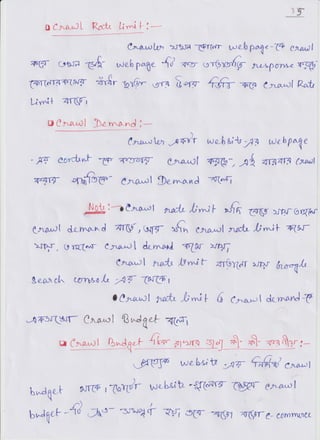 15
□ Crawl Rate limit :—
Crawler যখন কোনো webpage-কে crawl
করে তখন সেই webpage টি কত তাড়াতাড়ি response করছে
কোনোরকমের বাঁধা ছাড়া তার উপর ভিত্তি করে Crawl Rate
Limit বাড়ে।
□ Crawl Demand :—
Crawler একটা website-এর webpage
-এর content কে কতবার crawl করছে, এই বারবার Crawl
করার পদ্ধতিকে Crawl Demand বলে।
Note :— ● Crawl rate limit যদি বেড়ে যায় তাহলে
crawl demand বাড়ে, আর যদি crawl rate limit কমে
যায়, তাহলে crawl demand কমে যায়,
Crawl rate limit বাড়ানো যায় Google
Search console এর থেকে।
● Crawl rate limit ও Crawl demand-কে
একসাথে Crawl Budget বলে,
□ Crawl Budget ঠিক রাখার জন্য কী-কী করণীয় :—
প্রত্যেক website-এর নির্দিষ্ট crawl
budget থাকে, ছোটো website-গুলোর ক্ষেত্রে crawl
budget-টি দ্রুত সম্পূর্ণ হয়, তবে বড়ো বড়ো e-commerce